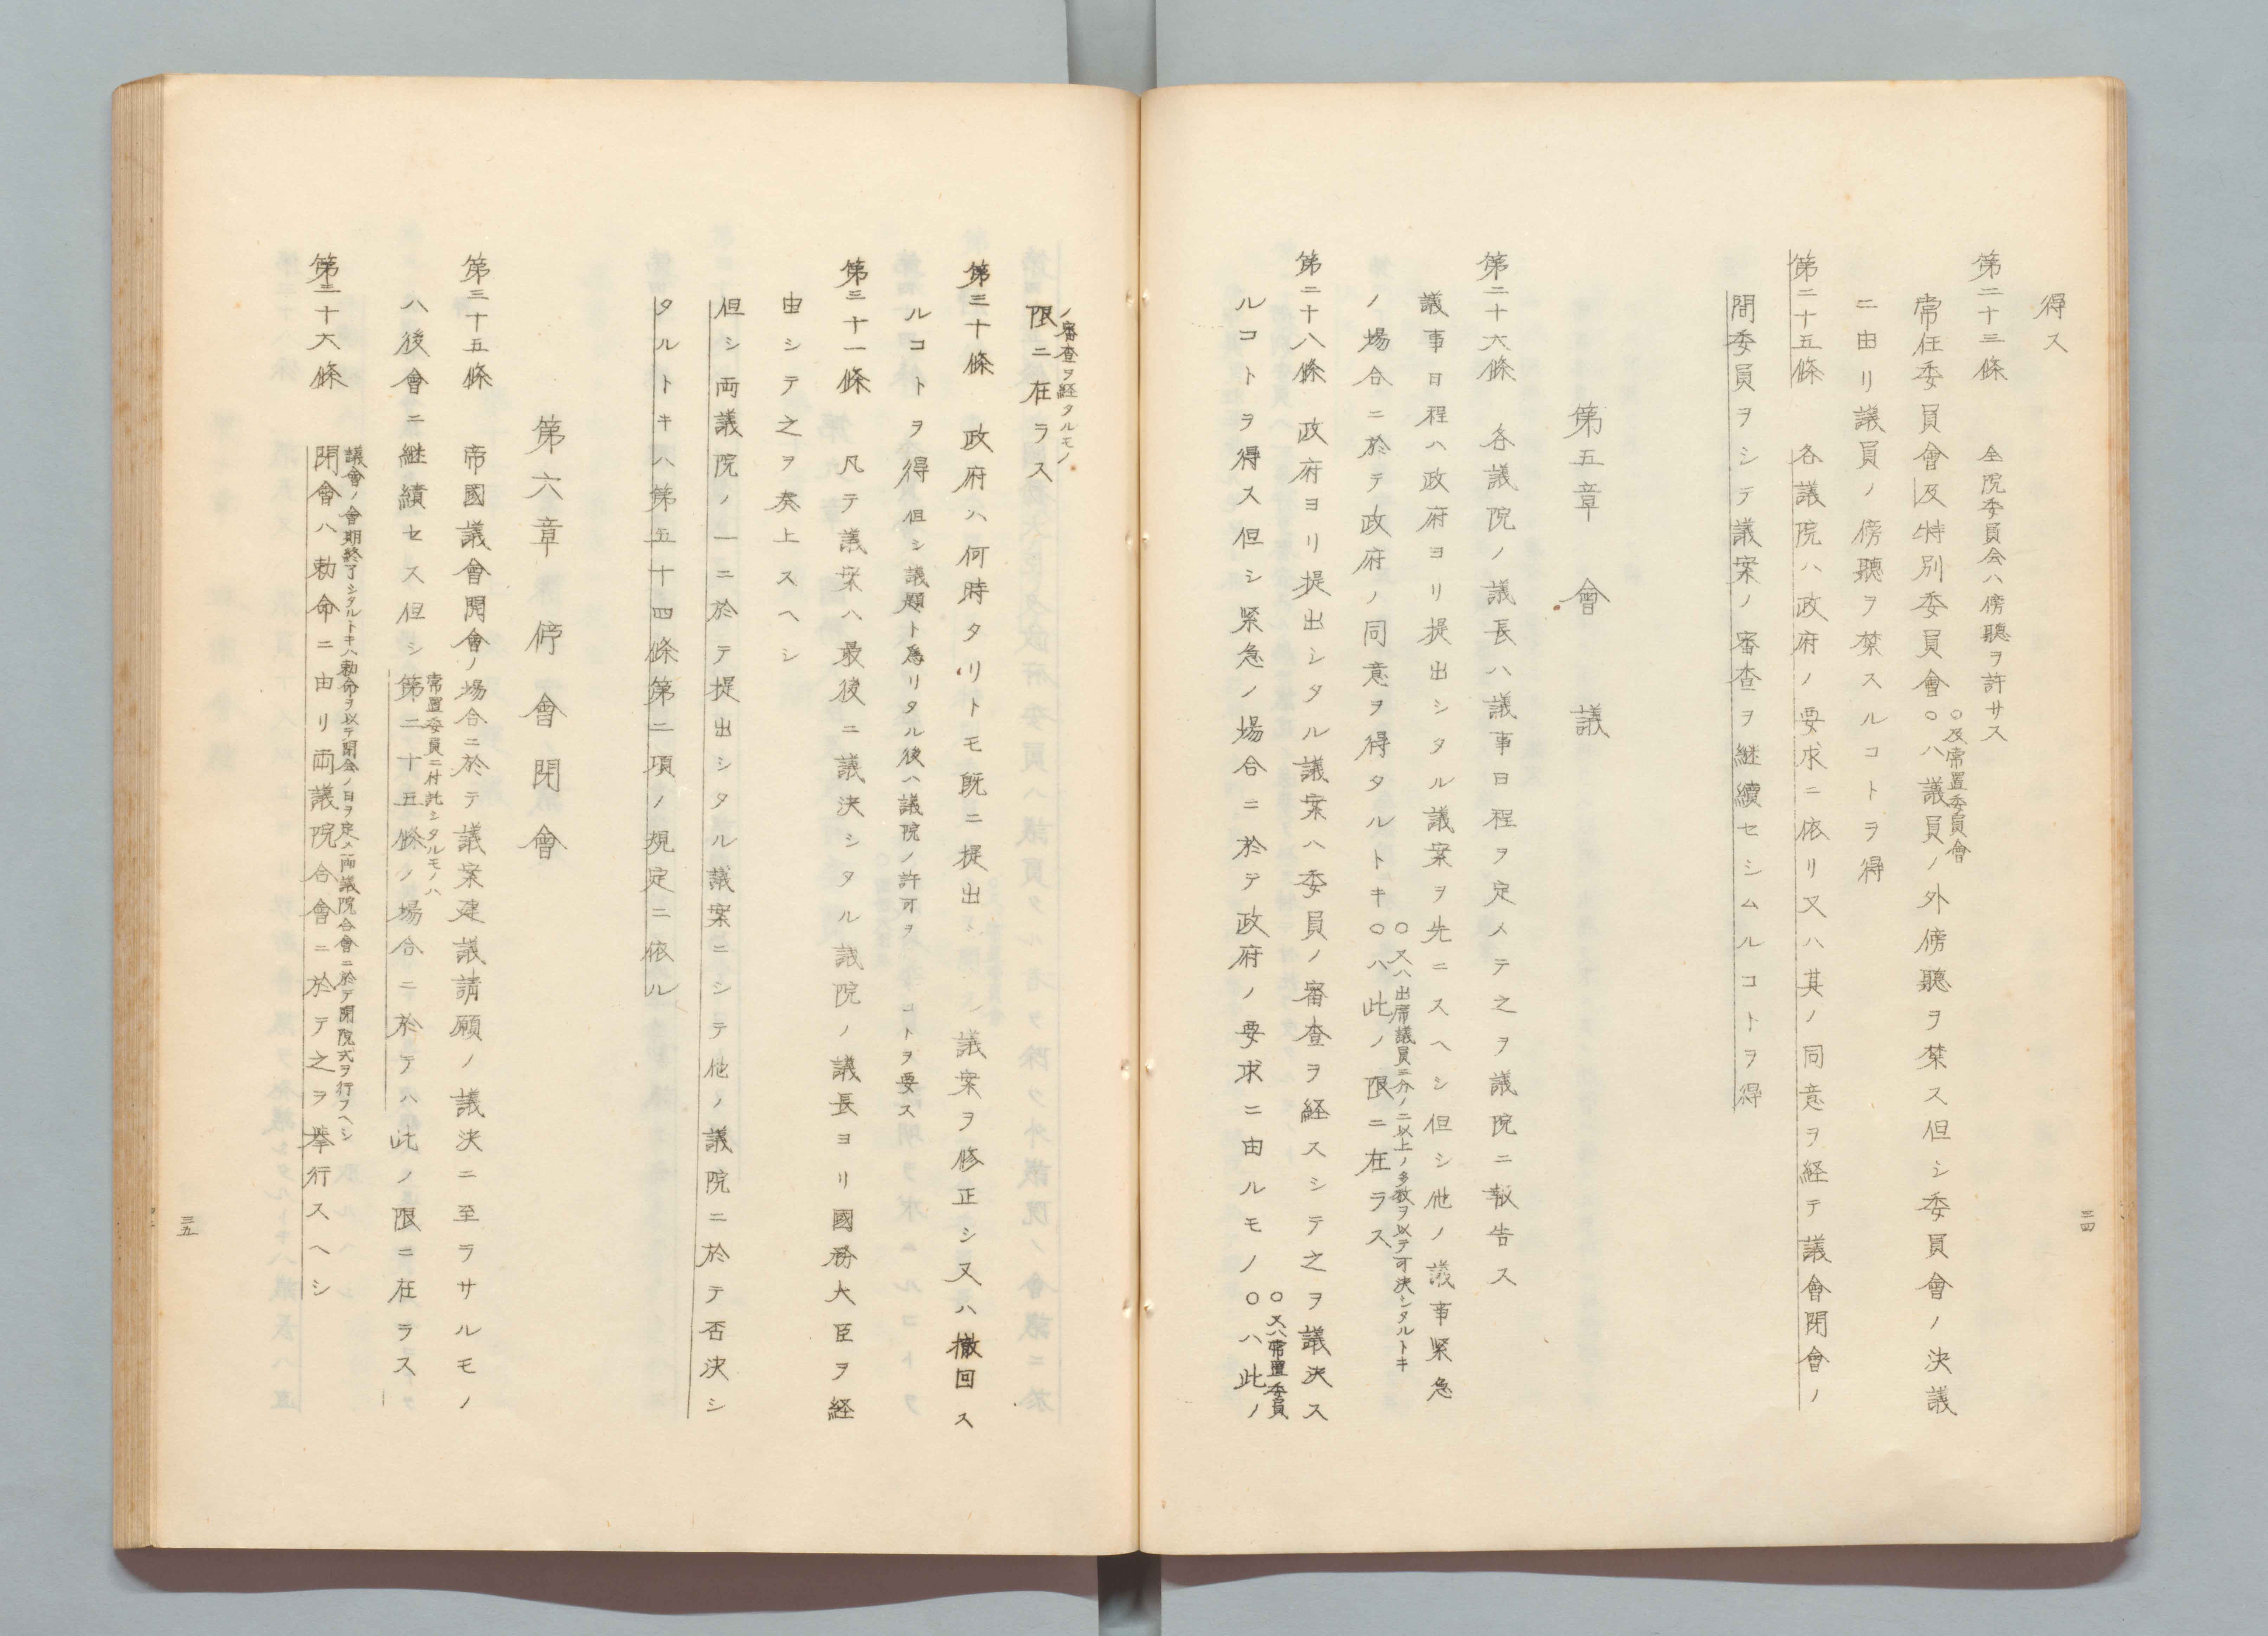 得ス
第二十三條　全院委員会ハ傍聽ヲ許サス
常任委員會及特別委員會○ハ議員ノ外傍聽ヲ禁ス但シ委員會ノ決議
○及常置委員會
ニ由リ議員ノ傍聽ヲ禁スルコトヲ得
第二十五條　各議院ハ政府ノ要求ニ依リ又ハ其ノ同意ヲ経テ議會閉會ノ
間委員ヲシテ議案ノ審査ヲ継續セシムルコトヲ得
第五章　會　議
第二十六條　各議院ノ議長ハ議事日程ヲ定メテ之ヲ議院ニ報告ス
議事日程ハ政府ヨリ提出シタル議案ヲ先ニスヘシ但シ他ノ議事緊急
ノ場合ニ於テ政府ノ同意ヲ得タルトキ○ハ此ノ限ニ在ラス
○又ハ出席議員三分ノ二以上ノ多数ヲ以テ可決シタルトキ
第二十八條　政府ヨリ提出シタル議案ハ委員ノ審査ヲ経スシテ之ヲ議決ス
ルコトヲ得ス但シ緊急ノ場合ニ於テ政府ノ要求ニ由ルモノ○ハ此ノ
○又ハ常置委員
三四
ノ審査ヲ経タルモノ
限ニ在ラス
第三十條　政府ハ何時タリトモ既ニ提出シ　ノ議案ヲ修正シ又ハ撤回ス
ルコトヲ得但シ議題ト為リタル後ハ議院ノ許可ヲ　コトヲ要ス
第三十一條　凡テ議案ハ最後ニ議決シタル議院ノ議長ヨリ國務大臣ヲ経
由シテ之ヲ奏上スヘシ
但シ両議院ノ一ニ於テ提出シタル議案ニシテ他ノ議院ニ於テ否決シ
タルトキハ第五十四條第二項ノ規定ニ依ル
第六章　停會閉會
第三十五條　帝國議會閉會ノ場合ニ於テ議案建議請願ノ議決ニ至ラサルモノ
ハ後會ニ継續セス但シ第二十五條ノ場合ニ於テハ此ノ限ニ在ラス
常置委員ニ付託シタルモノハ
第三十六條　閉會ハ勅命ニ由リ両議院合會ニ於テ之ヲ挙行スヘシ
議會ノ會期終了シタルトキハ勅命ヲ以テ閉会ノ日ヲ定メ両議院合會ニ於テ閉院式ヲ行フヘシ
三五